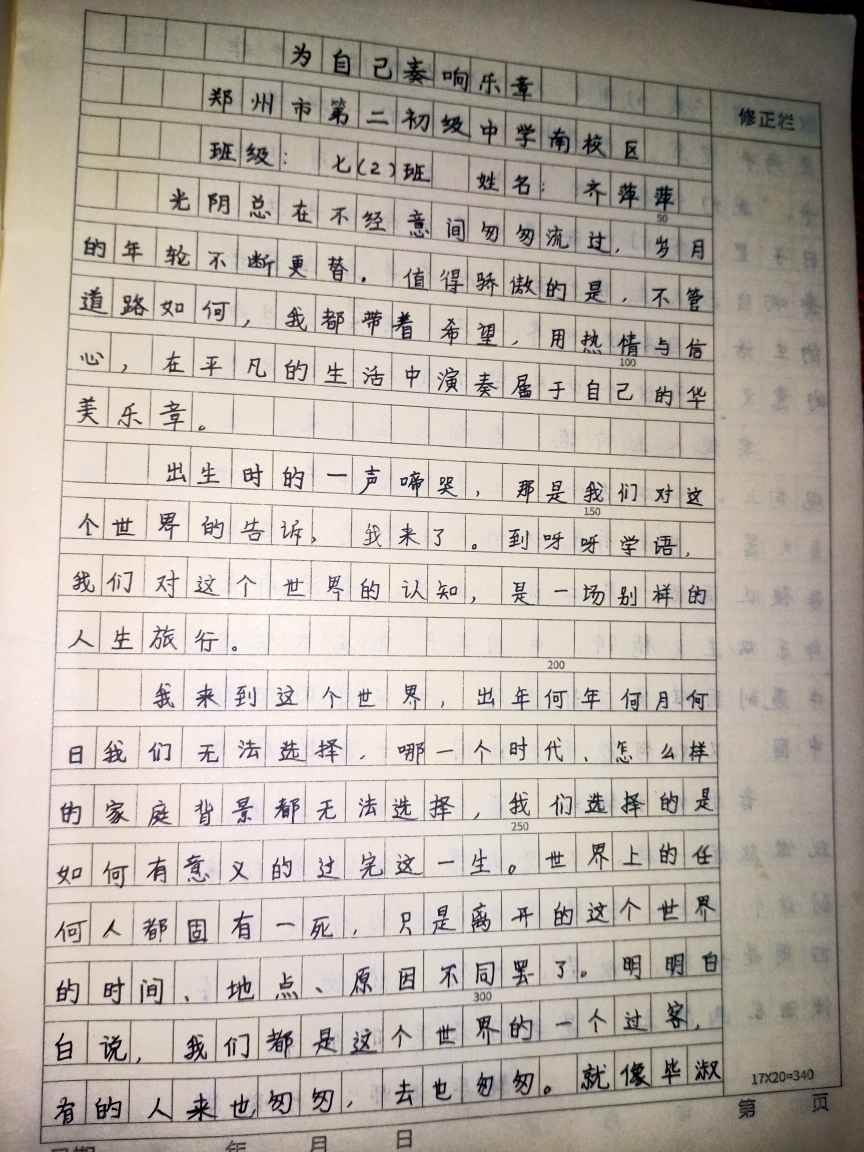 为自己奏响乐章
修正栏
郑州市第二初级中学南校区
班级：七(2)班 姓名：齐萍萍
50
光阴总在不经意间匆匆流过，岁月
的年轮不断更替。值得骄傲的是，不管
道路如何，我都带着希望，用热情与信
100
心，在平凡的生活中演奏属于自己的华
美乐章。
出生时的一声啼哭，那是我们对这
150
个世界的告诉，我来了。到呀呀学语，
我们对这个世界的认知，是一场别样的
人生旅行。
200
我来到这个世界，出年何年何月何
日我们无法选择，哪一个时代、怎么样
的家庭背景都无法选择，我们选择的是
250
如何有意义的过完这一生。世界上的任
何人都固有一死，只是离开的这个世界
的时间、地点、原因不同罢了。明明白
300
白说，我们都是这个世界的一个过客，
有的人来也匆匆，去也匆匆。就像毕淑
17X20=340
年 月 日
第 页